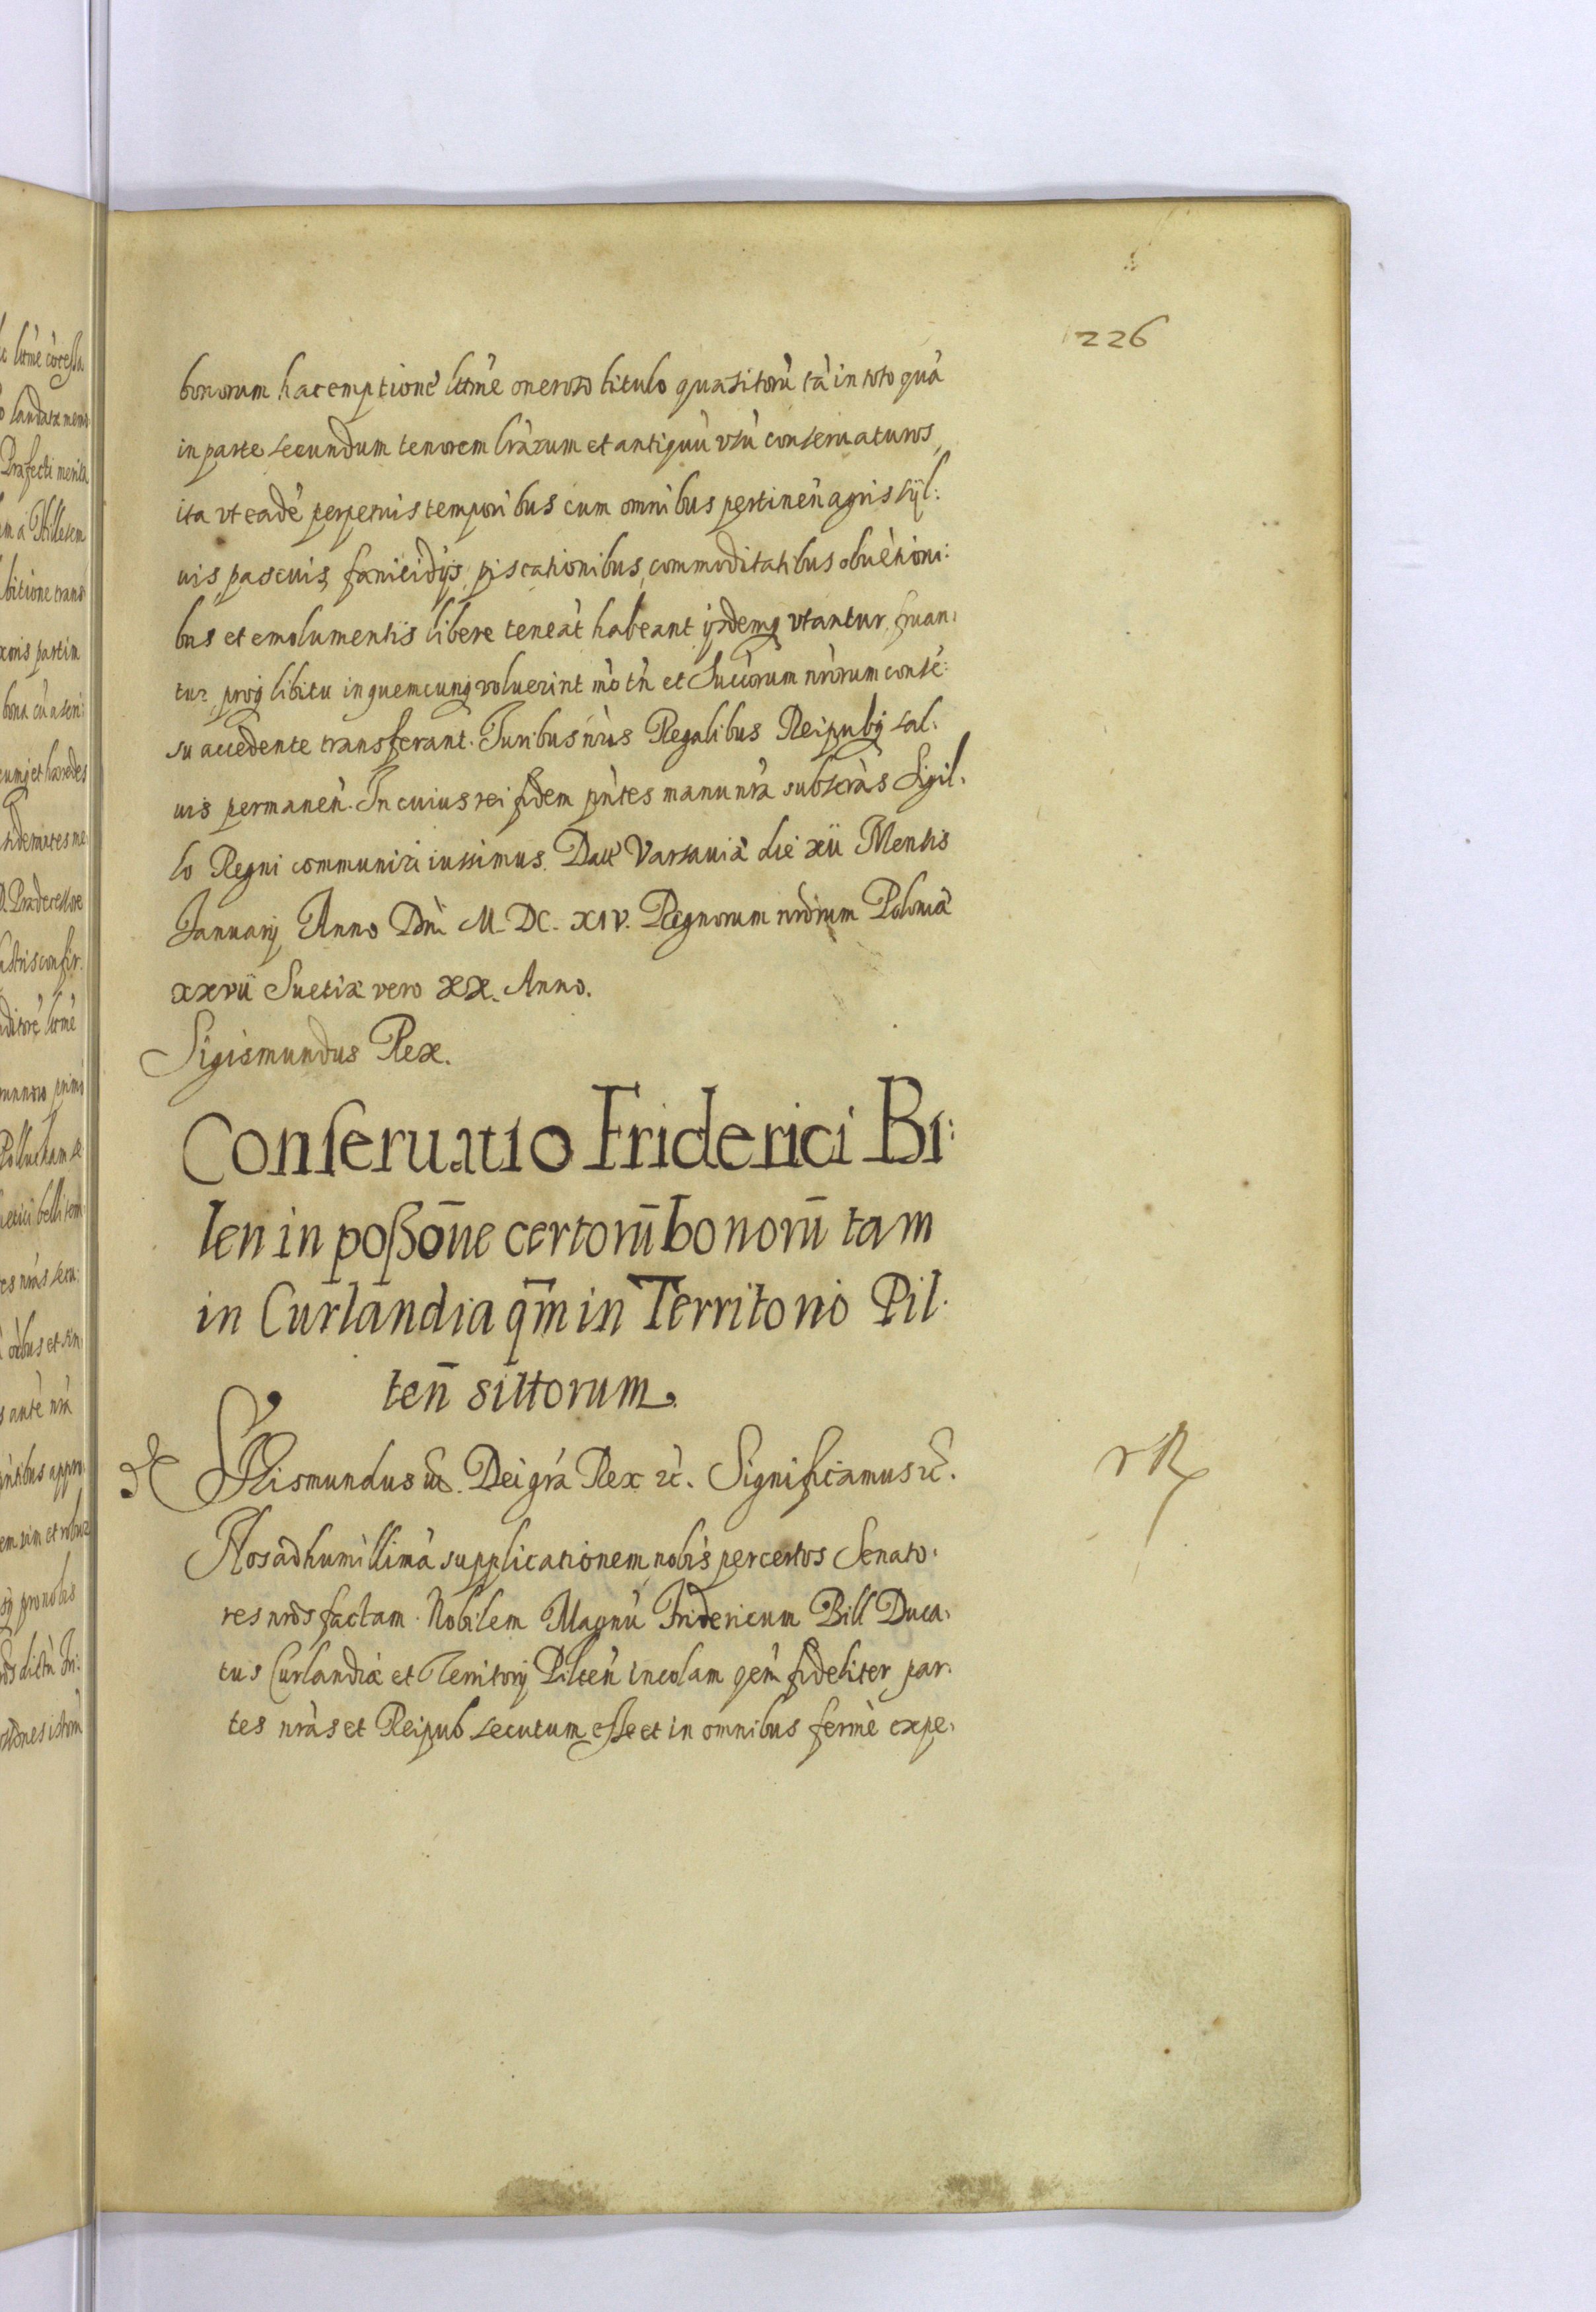 226
bonorum hac emptione lttme oneroso titulo quasitorù tà in toto quà
in parte secundum tenorem lràrum et antiquù vsù conseruaturos,
ita vt eadè perpetuis temporibus cum omnibus pertineñ agris syl:
uis, pascuis, fænicidijs, piscationibus, commoditatibus obuètioni:
bus et emolumentis libere teneàt habeant ijsdemq vtantur, fruan:
tur, proq libitu in quemcunq voluerint mò tñ et Succorum nrorum consè:
su accedente transferant. Iuribus nris Regalibus Reipubq sal:
uis permaneñ. In cuius rei fidem pntes manu nrà subscràs Sigil:
lo Regni communiri iussimus. Datt Varsauiæ die xii Mensis
Ianuarij Anno Dni M. DC. XIV. Regnorum nrorum Poloniæ
xxvii Suetiæ vero XX. Anno.
Sigismundus Rex.
Conseruatio Friderici Bi:
len in poßone certorū bonorū tam
in Curlandia qm in Territorio Pil:
teñ sittorum.
Sigismundus iii. Dei grà Rex &c. Significamus &c.
Nos ad humillimà supplicationem nobis per certos Senato:
res nros factam. Nobilem Magnù Fridericum Bill Duca:
tus Curlandiæ et Territorij Pilteñ incolam qem fideliter par:
tes nràs et Reipub secutum esse et in omnibus fermè expe: